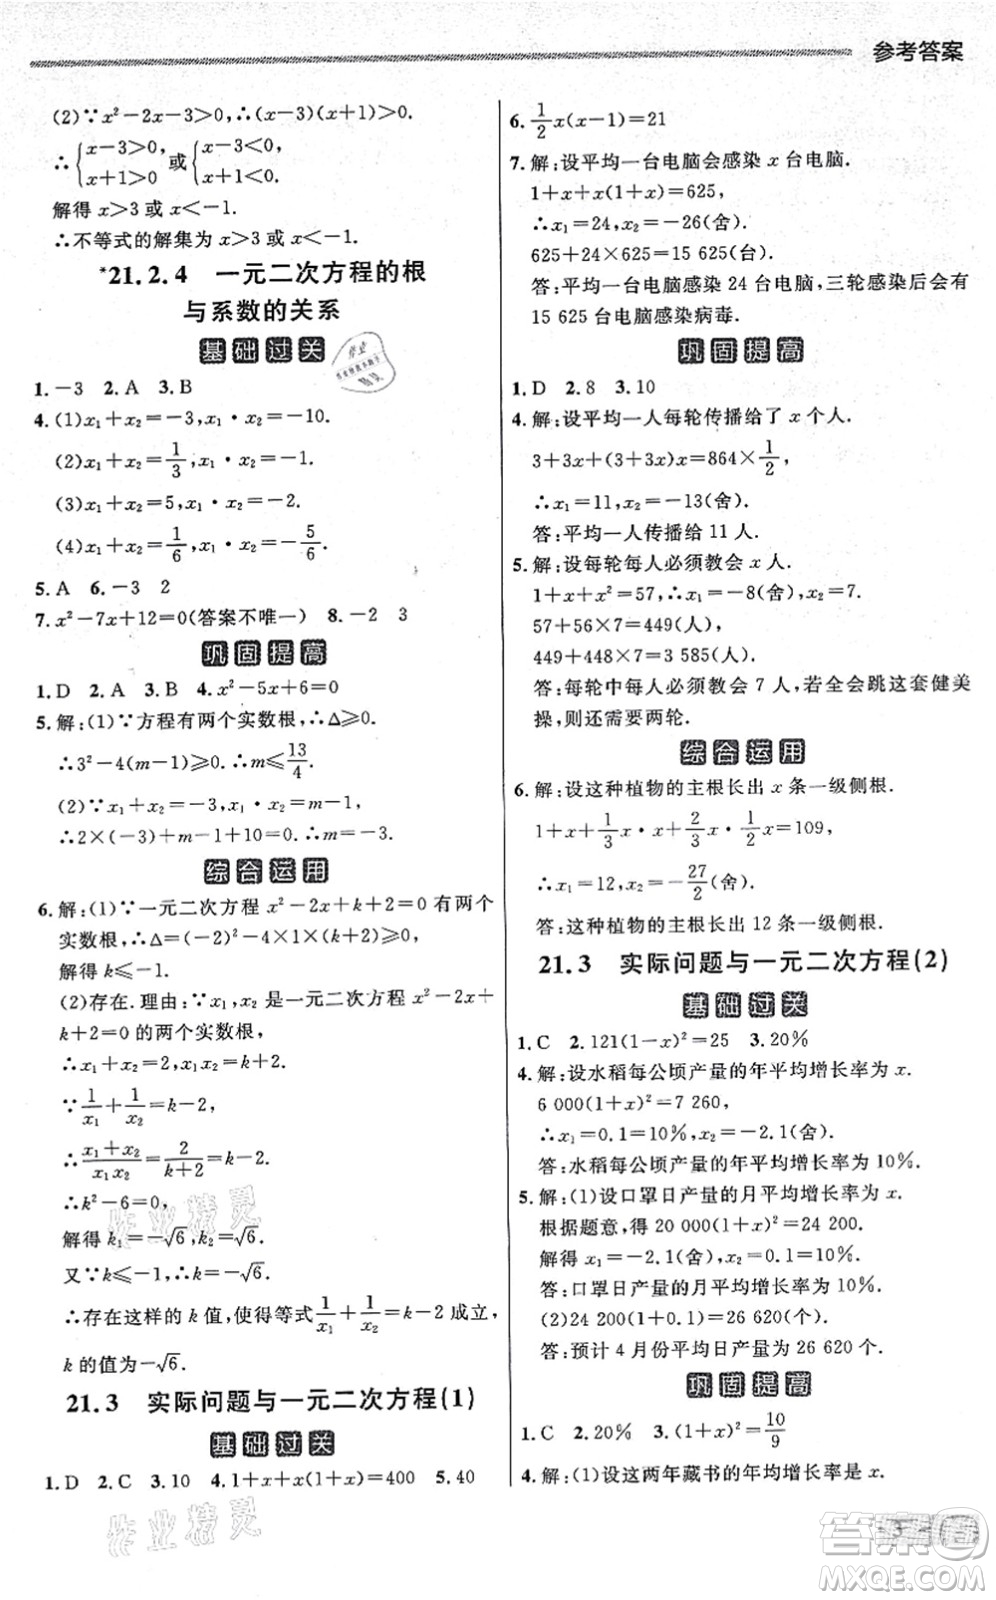 参考答案
(2)∵x²-2x-3>0,∴(x-3)(x+1)>0.
∴{x-3>0 x+1>0 或{x-3<0, x+1<0.
解得 x>3 或 x<-1.
∴不等式的解集为 x>3 或 x<-1.
*21.2.4 一元二次方程的根
与系数的关系
基础过关
1.-3 2.A 3.B
4.(1)x₁+x₂=-3,x₁·x₂=-10.
(2)x₁+x₂=1/3,x₁·x₂=-1.
(3)x₁+x₂=5,x₁·x₂=-2.
(4)x₁+x₂=1/6,x₁·x₂=-5/6.
5.A 6.-3 2
7.x²-7x+12=0(答案不唯一) 8.-2 3
巩固提高
1.D 2.A 3.B 4.x²-5x+6=0
5.解:(1)∵方程有两个实数根,∴Δ⩾0.
∴3²-4(m-1)⩾0.∴m⩽13/4.
(2)∵x₁+x₂=-3,x₁·x₂=m-1,
∴2×(-3)+m-1+10=0.∴m=-3.
综合运用
6.解:(1)∵一元二次方程 x²-2x+k+2=0 有两个
实数根,∴Δ=(-2)²-4×1×(k+2)⩾0,
解得 k⩽-1.
(2)存在.理由:∵x₁,x₂ 是一元二次方程 x²-2x+
k+2=0 的两个实数根,
∴x₁+x₂=2,x₁x₂=k+2.
∵1/x₁+1/x₂=k-2,
∴(x₁+x₂)/(x₁x₂)=2/(k+2)=k-2.
∴k²-6=0,
解得 k₁=-√6,k₂=√6.
又∵k⩽-1,∴k=-√6.
∴存在这样的 k 值,使得等式1/x₁+1/x₂=k-2 成立,
k 的值为-√6.
21.3 实际问题与一元二次方程(1)
基础过关
1.D 2.C 3.10 4.1+x+x(1+x)=400 5.40
6.1/2x(x-1)=21
7.解:设平均一台电脑会感染 x 台电脑.
1+x+x(1+x)=625,
∴x₁=24,x₂=-26(舍).
625+24×625=15 625(台).
答:平均一台电脑感染 24 台电脑,三轮感染后会有
15 625 台电脑感染病毒.
巩固提高
1.D 2.8 3.10
4.解:设平均一人每轮传播给了 x 个人.
3+3x+(3+3x)x=864×1/2,
∴x₁=11,x₂=-13(舍).
答:平均一人传播给 11 人.
5.解:设每轮每人必须教会 x 人.
1+x+x+x²=57,∴x₁=-8(舍),x₂=7.
57+56×7=449(人),
449+448×7=3 585(人).
答:每轮中每人必须教会 7 人,若全会跳这套健美
操,则还需要两轮.
综合运用
6.解:设这种植物的主根长出 x 条一级侧根.
1+x+1/3x·x+2/3x·1/2x=109,
∴x₁=12,x₂=-27/2(舍).
答:这种植物的主根长出 12 条一级侧根.
21.3 实际问题与一元二次方程(2)
基础过关
1.C 2.121(1-x)²=25 3.20%
4.解:设水稻每公顷产量的年平均增长率为 x.
6 000(1+x)²=7 260,
∴x₁=0.1=10%,x₂=-2.1(舍).
答:水稻每公顷产量的年平均增长率为 10%.
5.解:(1)设口罩日产量的月平均增长率为 x.
根据题意,得 20 000(1+x)²=24 200.
解得 x₁=-2.1(舍),x₂=0.1=10%.
答:口罩日产量的月平均增长率为 10%.
(2)24 200(1+0.1)=26 620(个).
答:预计 4 月份平均日产量为 26 620 个.
巩固提高
1.C 2.20% 3.(1+x)²=10/9
4.解:(1)设这两年藏书的年均增长率是 x.
作业精灵
作业精灵
答案圈
MXQE.COM